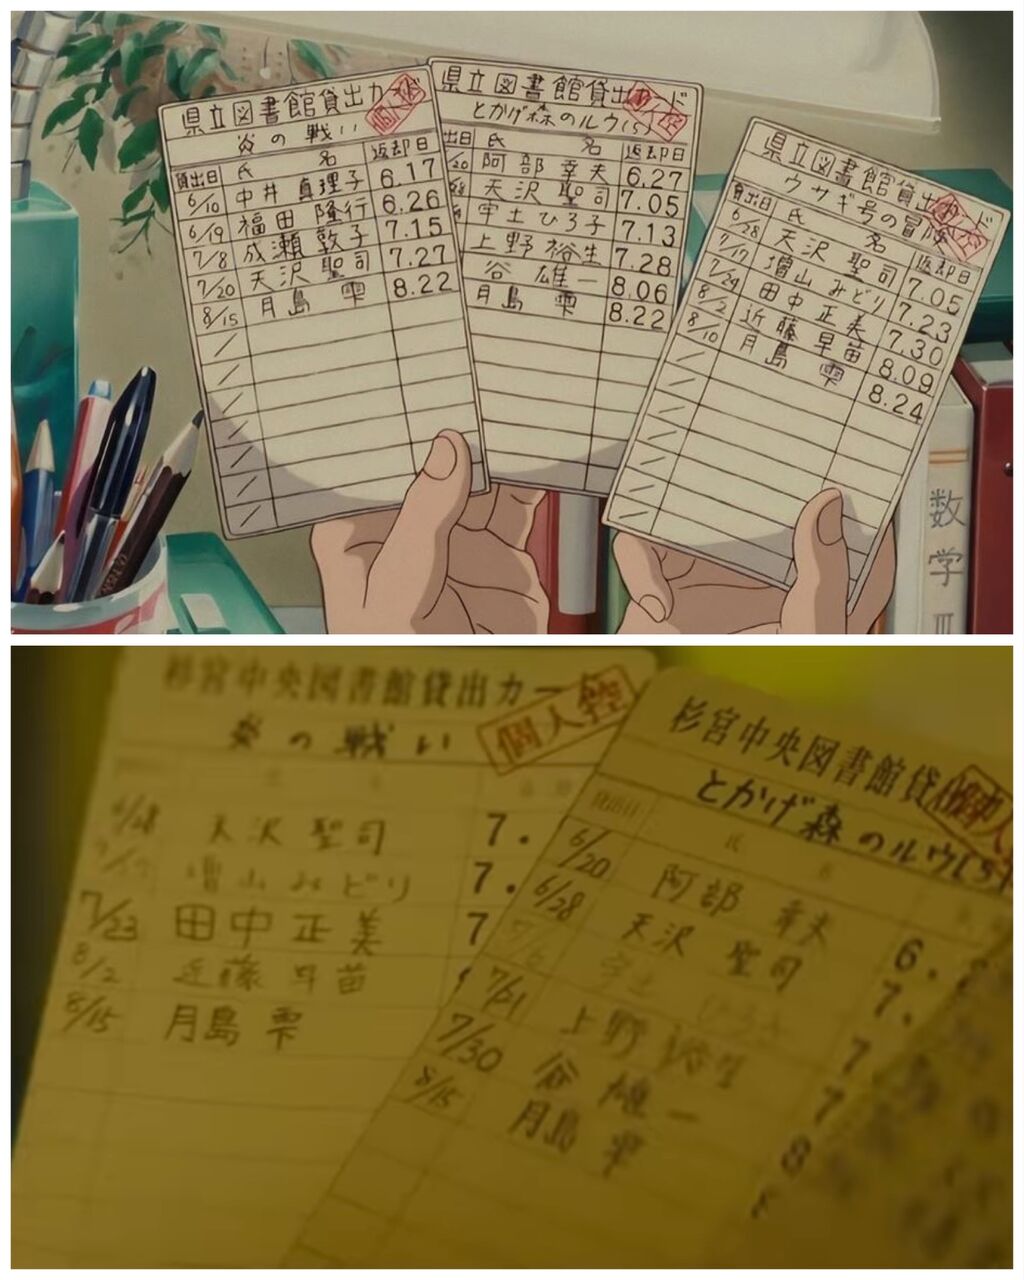 県立図書館貸出カード
炎の戦い
貸出日 氏 名 返却日
6/10 中井 真理子 6.17
6/19 福田 隆行 6.26
7/8 成瀬 敦子 7.15
7/20 天沢 聖司 7.27
8/15 月島 雫 8.22
県立図書館貸出カード
とかげ森のルウ(5)
出日 氏 名 返却日
/20 阿部 幸夫 6.27
天沢 聖司 7.05
宇土ひろ子 7.13
上野 裕生 7.28
谷 雄一 8.06
月島 雫 8.22
県立図書館貸出カード
ウサギ号の冒険
貸出日 氏 名 返却日
6/28 天沢 聖司 7.05
7/17 増山 みどり 7.23
7/24 田中 正美 7.30
8/2 近藤 早苗 8.09
8/10 月島 雫 8.24
数学III
杉宮中央図書館貸出カー
個人
炎の戦い
6/28 天沢 聖司 7.
増山 みどり 7.
7/23 田中 正美 7
8/2 近藤 早苗
8/15 月島 雫
杉宮中央図書館貸
個人
とかげ森のルウ(5)
貸出日 氏 名
6/20 阿部 幸夫 6.
6/28 天沢 聖司 7.
7/6 宇土 ひろ子 7
7/21 上野 裕生 7
7/30 谷 雄一 8
8/15 月島 雫